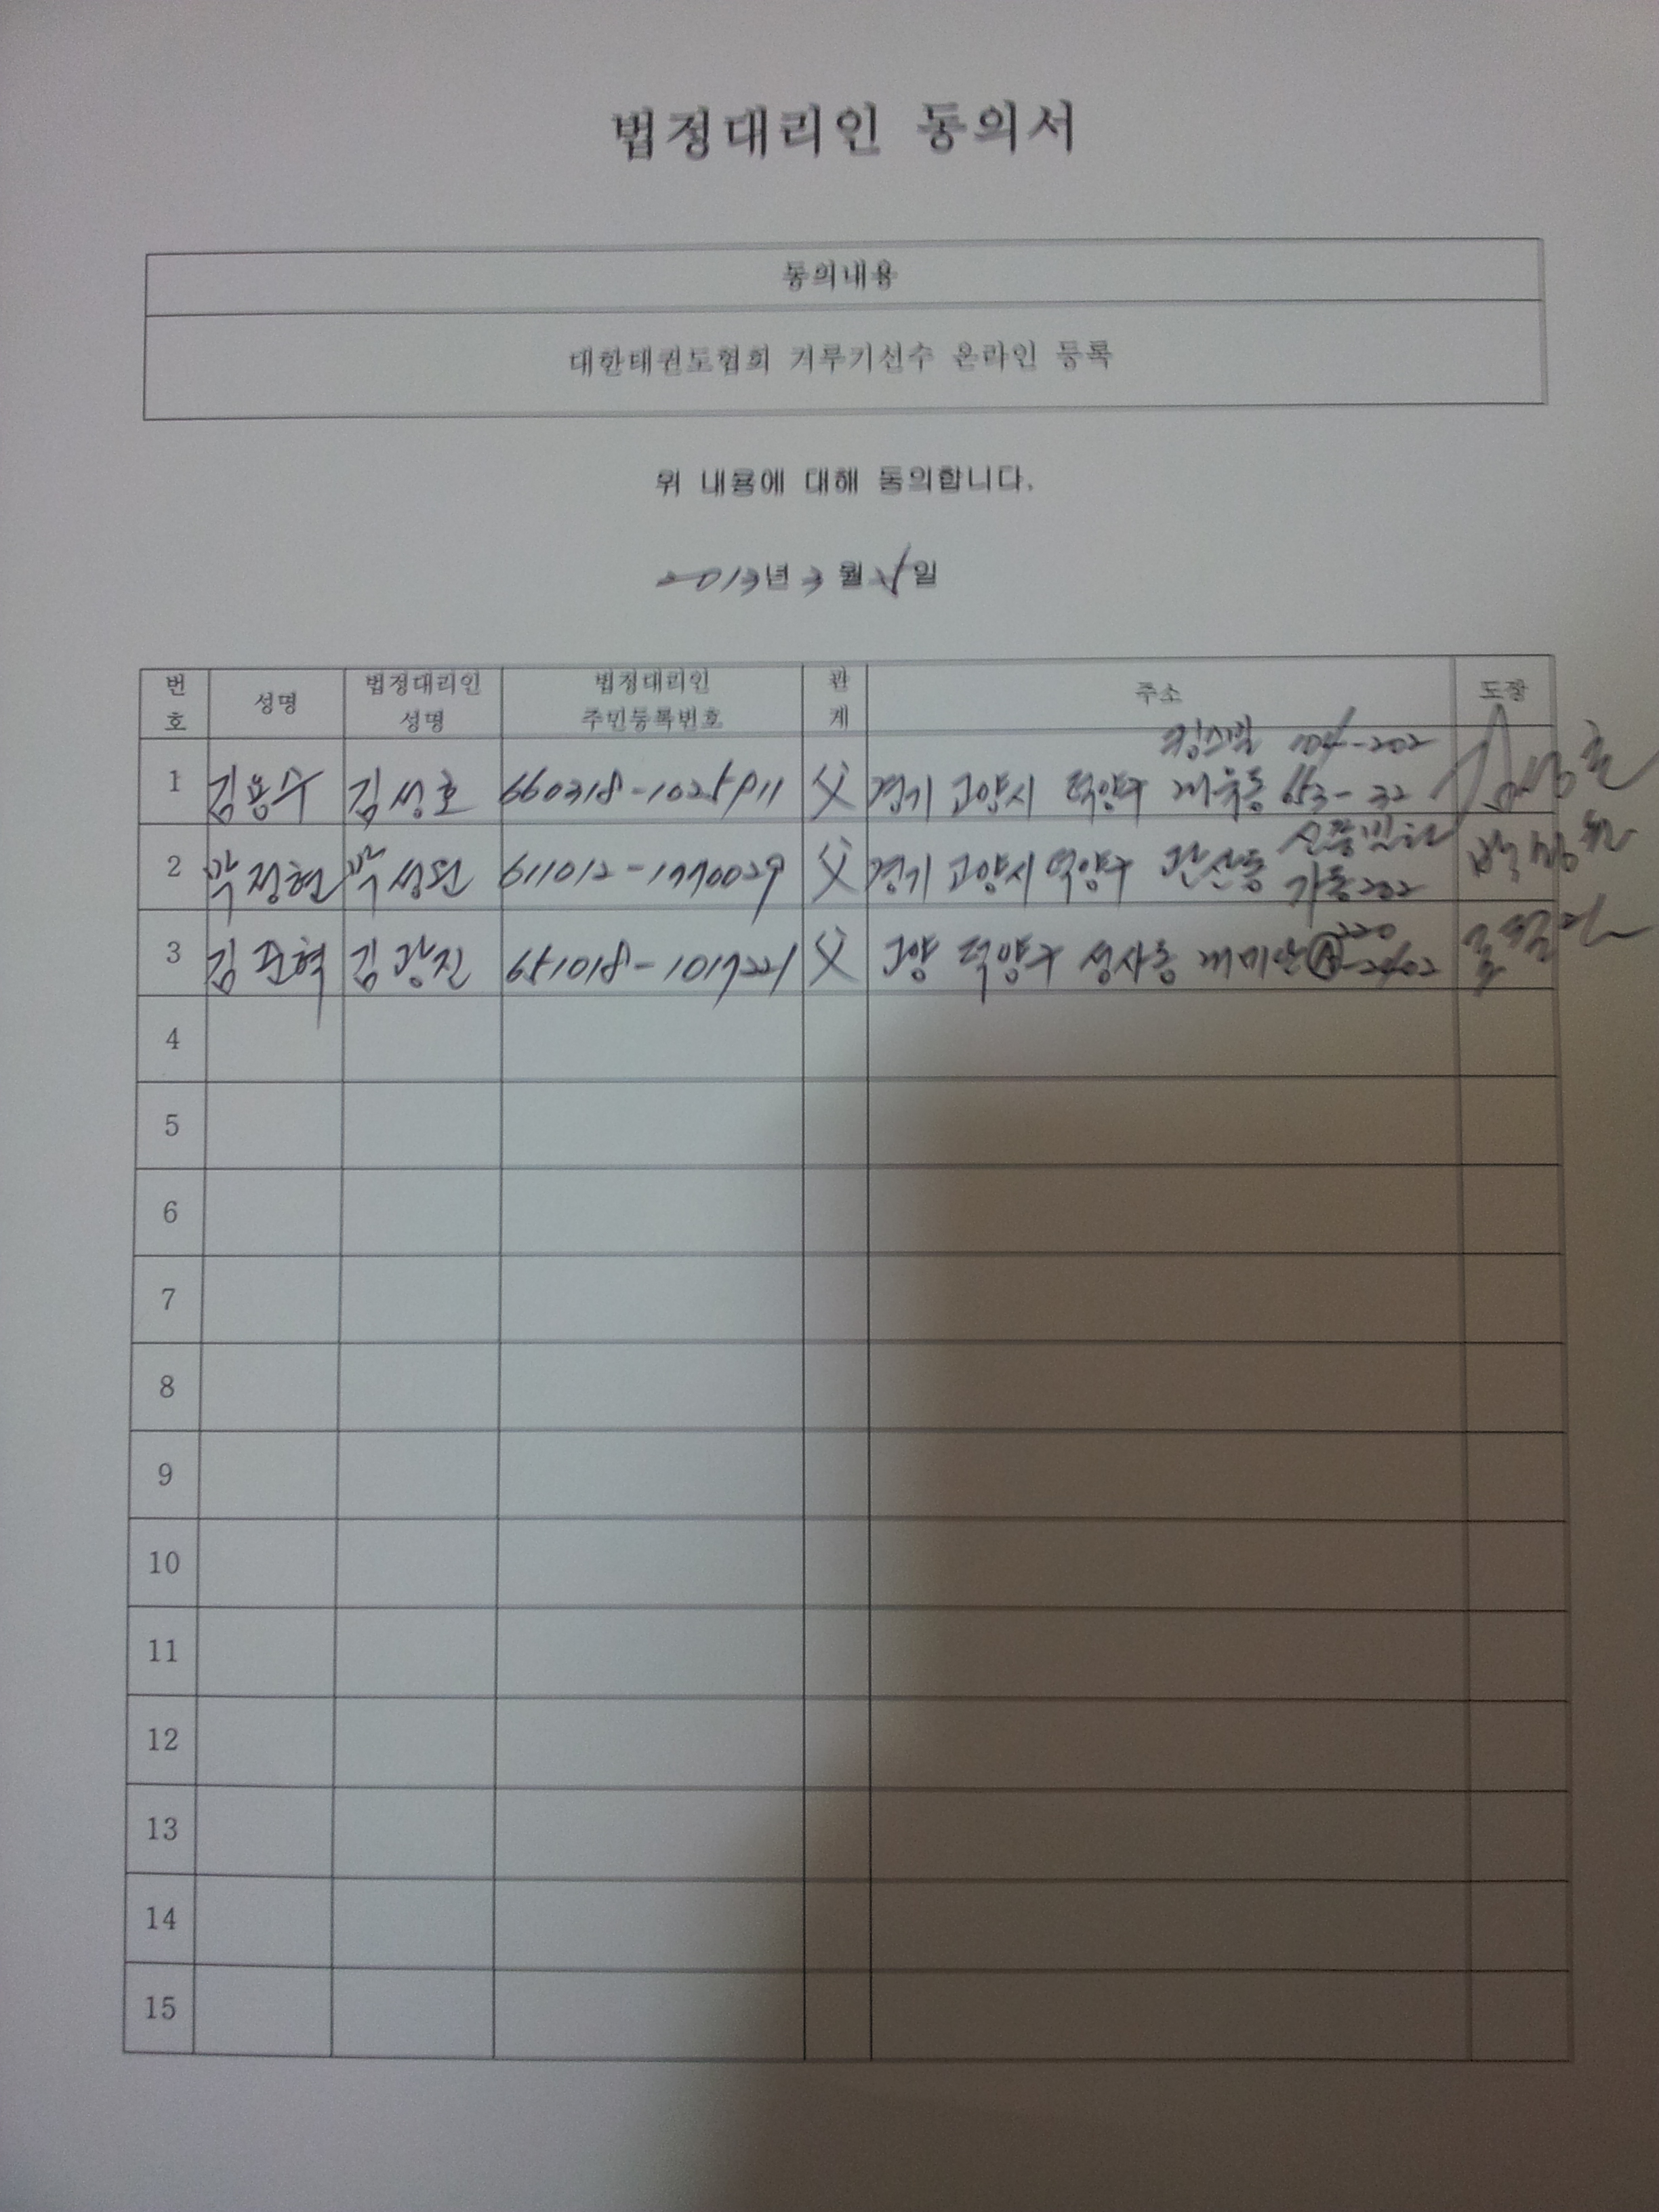 법정대리인 동의서
동의내용
대한태권도협회 겨루기선수 온라인 등록
위 내용에 대해 동의합니다.
2013년 3월 일
번호 성명 법정대리인 성명 법정대리인 주민등록번호 관계 주소 도장
킹스빌 104-202
1 김용수 김성호 父 경기 고양시 덕양구 653-32
2 박정현 박성원 父 경기 고양시 덕양구 관산동 가동 202
3 김준혁 김광진 651018-1017221 父 고양 덕양구 성사동 래미안 220-2402
4
5
6
7
8
9
10
11
12
13
14
15